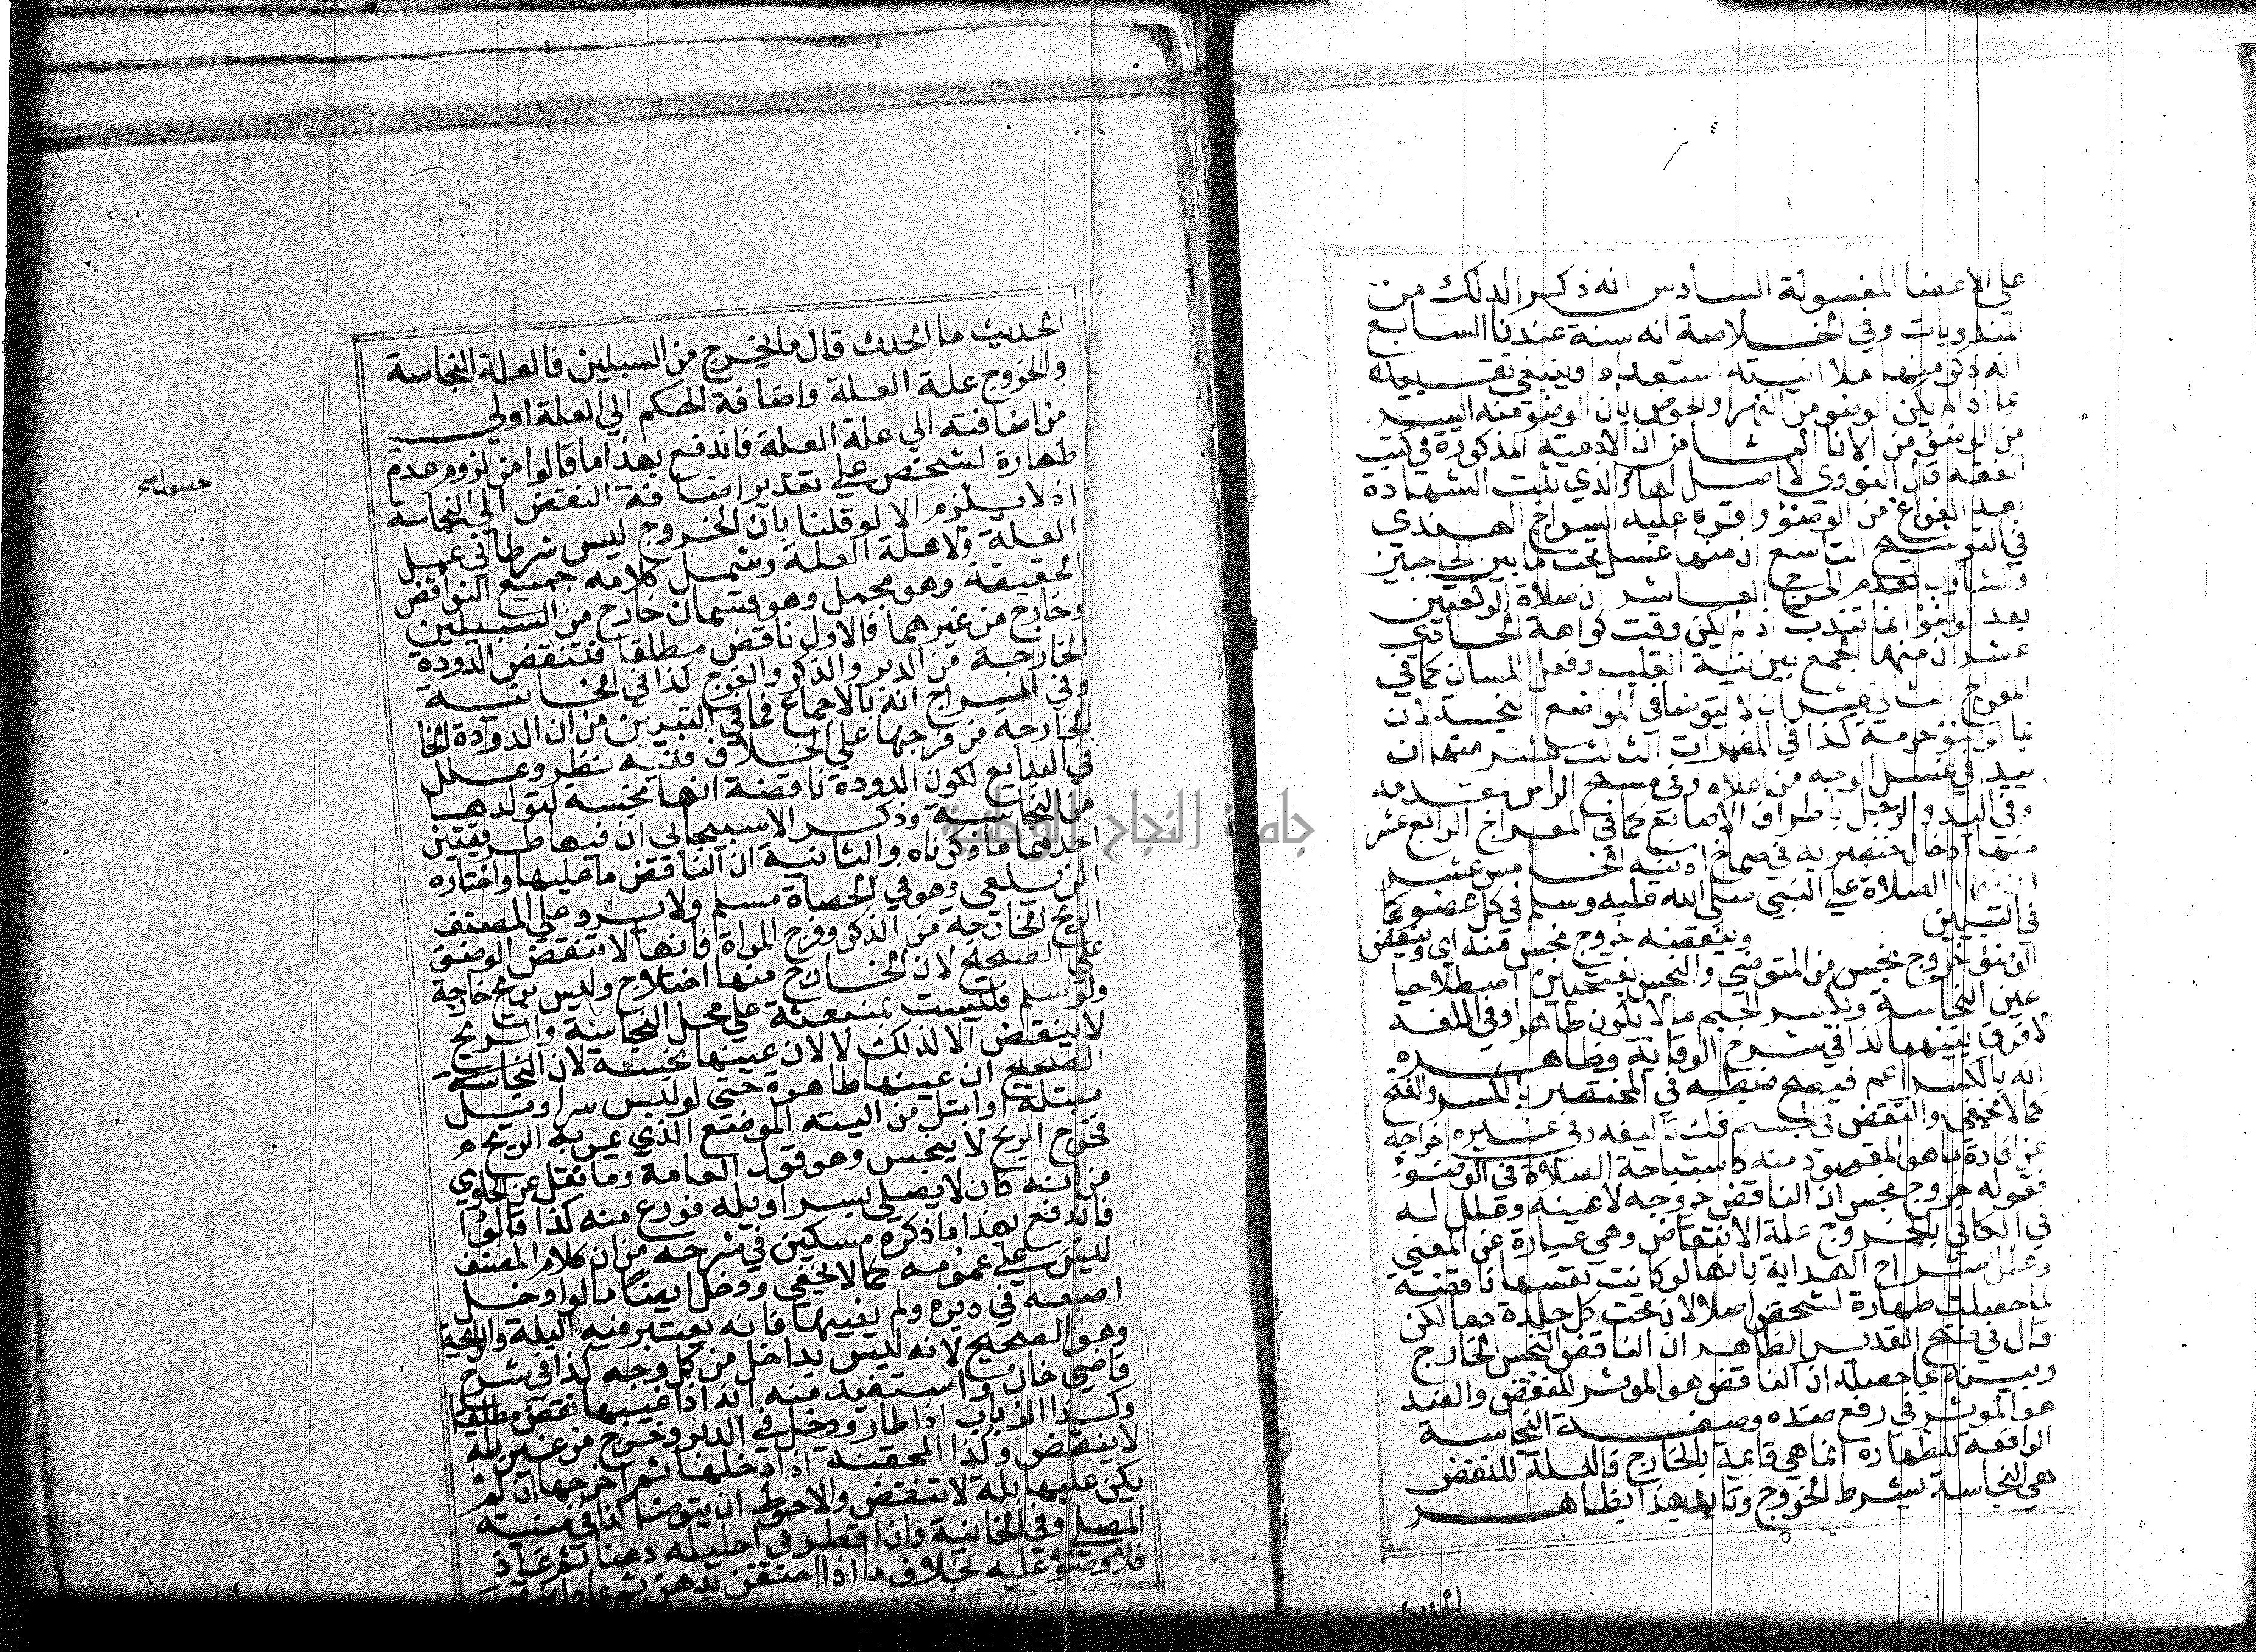 على الاعضا المغسولة السادس انه ذكر الدلك من
المندوبات وفي الخلاصة انه سنة عندنا السابع
انه ذكر منها ملا انيته استعدادا وينبغي تقييده
بما اذا لم يكن الوضو من النهر او الحوض لان الوضو منه ايسر
من الوضو من الانا الثامن ان الادعية المذكورة في كتب
الفقه قال النووي لا اصل لها والذي ثبت الشهادة
بعد الفراغ من الوضؤ واقره عليه السراج الهندي
في التوشيح التاسع ان منها غسل تحت ما بين الحاجبين
والشارب لعدم الحرج العاشر ان صلاة الركعتين
بعد الوضؤ انما تندب اذا لم يكن وقت كراهة الحادي
عشر ان منها الجمع بين نية القلب وفعل اللسان كما في
المعراج الثاني عشر ان لا يتوضا في المواضع النجسة لان
لما الوضؤ حرمة كذا في المضمرات الثالث عشر منها ان
يبدا في غسل الوجه من اعلاه وفي مسح الراس بمقدمه
وفي اليد والرجل باطراف الاصابع كما في المعراج الرابع عشر
منها ادخال خنصريه في صماخ اذنيه الخامس عشر
الصلاة على النبي صلى الله عليه وسلم في كل عضو كما
في التبيين وينقضه خروج نجس منه اي وينقض
الوضؤ خروج نجس من المتوضي والنجس بفتحتين اصطلاحا
عين النجاسة وبكسر الجيم ما لا يكون طاهرا وفي اللغة
لا فرق بينهما كذا في شرح الوقاية وظاهره
انه بالكسر اعم فيصح ضبطه في المختصر بالكسر والفتح
كما لا يخفى والنقض في الجسم فك تاليفه وفي غيره اخراجه
عن افادة ما هو المقصود منه كاستباحة الصلاة في الوضؤ
فقوله خروج نجس ان الناقض خروجه لا عينه وعلل له
في الكافي بان الخروج علة الانتقاض وهي عبارة عن المعني
وعلل شراح الهداية بانها لو كانت نفسها ناقضة
لما حصلت طهارة لشخص اصلا لان تحت كل جلدة دما لكن
قال في فتح القدير الظاهر ان الناقض النجس الخارج
وبينه بما حصله ان الناقض هو الموثر للنقض والضد
هو الموثر في رفع ضده وصفة النجاسة
الرافعة للطهارة انما هي قايمة بالخارج فالعلة للنقض
هي النجاسة بشرط الخروج وتايد هذا بظاهر
الحديث
الحديث ما الحدث قال ما يخرج من السبيلين فالعلة النجاسة
والخروج علة العلة واضافة الحكم الي العلة اولي
من اضافته الي علة العلة فاندفع بهذا ما قالوا من لزوم عدم
طهارة لشخص علي تقدير اضافة النقض الي النجاسة
اذ لا يلزم الا لو قلنا بان الخروج ليس شرطا في عمل
العلة ولا علة العلة وشمل كلامه جميع النواقض
الحقيقة وهو مجمل وهو قسمان خارج من السبيلين
وخارج من غيرهما فالاول ناقض مطلقا فتنقض الدودة
الخارجة من الدبر والذكر والفرج كذا في الخانية
وفي السراج انه بالاجماع فما في التبيين من ان الدودة الخا
الخارجه من فرجها علي الخلاف ففيه نظر وعلل
في البدايع لكون الدودة ناقضة انها نجسة لتولدها
من النجاسة وذكر الاسبيجابي ان فيها طريقتين
احدهما ما ذكرناه والثانية ان الناقض ما عليها واختاره
الزيلعي وهو في الحصاة مسلم ولا يرد علي المصنف
الريح الخارجة من الذكر وفرج المراة فانها لا تنقض الوضؤ
علي الصحيح لان الخارج منها اختلاج وليس بريح خارجة
ولو سلم فليست بمنبعثة علي محل النجاسة والريح
لا ينقض الا لذلك لا لان عينها نجسة لان النجاسة
الصحيح ان عينها طاهرة حتي لو لبس سراويل
مبتلة او ابتل من اليته الموضع الذي يمر به الريح
فخرج الريح لا ينجس وهو قول العامة وما نقل عن الحلوي
من انه كان لا يصلي بسراويله فورع منه كذا قالوا
فاندفع بهذا ما ذكره مسكين في شرحه من ان كلام المصنف
ليس علي عمومه كما لا يخفي ودخل ايضا ما لو ادخل
اصبعه في دبره ولم يغيبها فانه يعتبر فيه البلة والرايحة
وهو الصحيح لانه ليس بداخل من كل وجه كذا في شرح
قاضي خان واستفيد منه انه اذا غيبها نقض مطلقا
وكذا الذباب اذا طار ودخل في الدبر وخرج من غير بلة
لا ينقض وكذا المحقنة اذا ادخلها ثم اخرجها ان لم
يكن عليها بلة لا تنقض والاحوط ان يتوضا كذا في منية
المصلي وفي الخانية وان اقطر في احليله دهنا ثم عاد
فلا وضؤ عليه بخلاف ما اذا احتقن بدهن ثم عاد
جامعة النجاح الوطنية